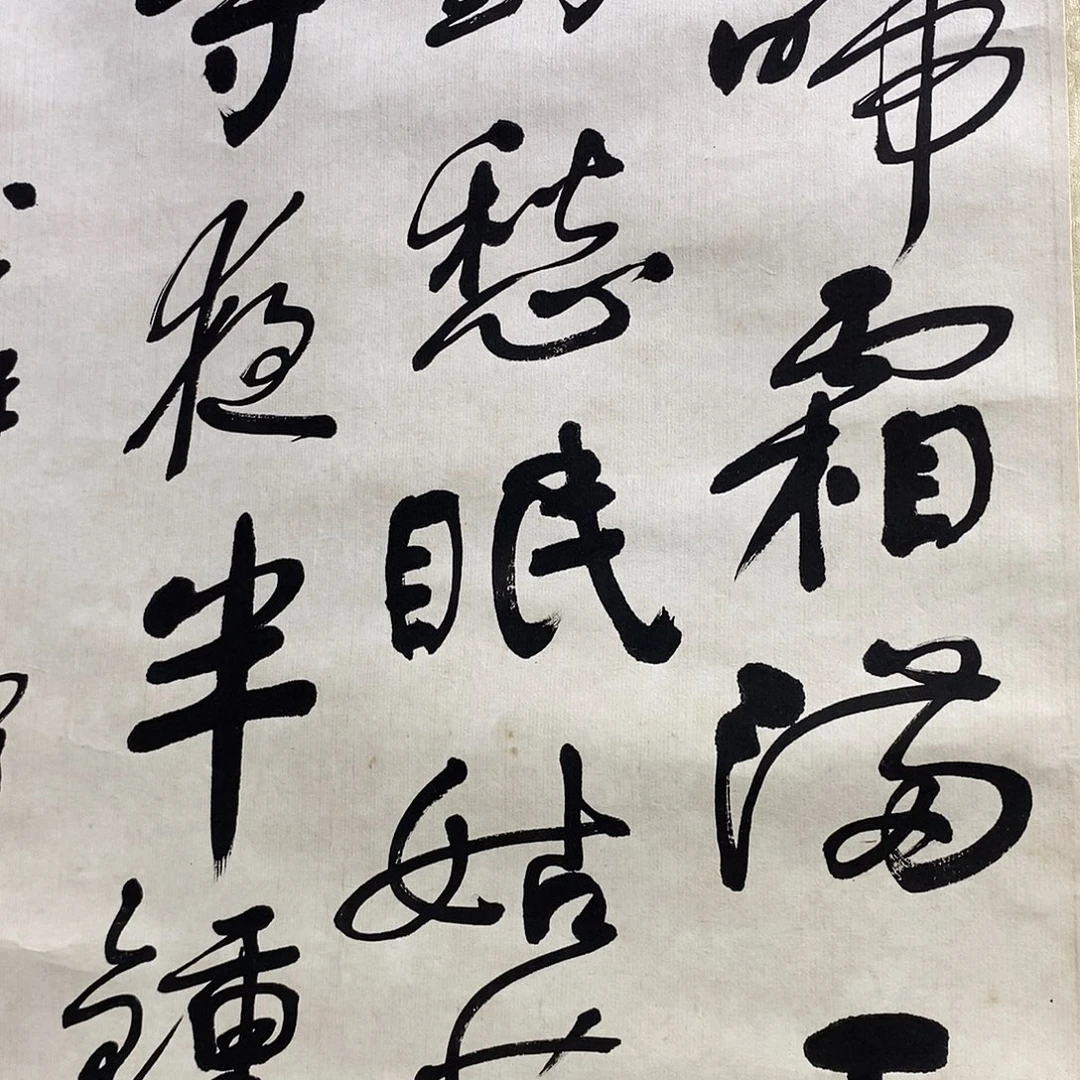 啼霜滿天
對愁眠姑蘇
寺夜半鐘